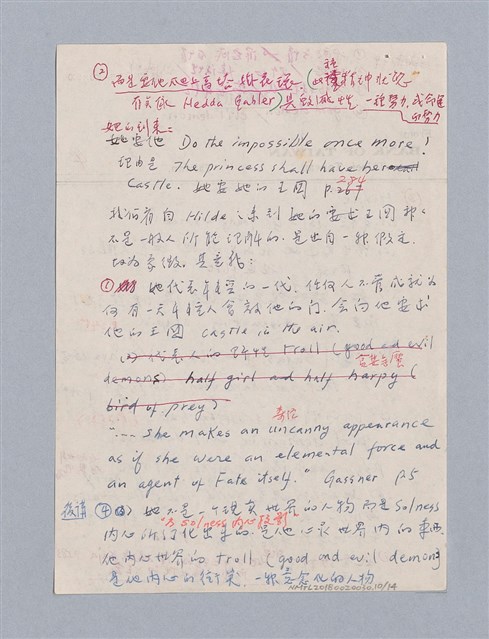 ② 而是要他爬上高塔掛花環，(此種精神狀況
有点像 Hedda Gabler) 是致命性 一種努力，
的努力
她的到來：
她要他 Do the impossible once more!
理由是 The princess shall have her
Castle. 她要她的王國 p.284
我們看自 Hilde 來到她的要求王國都
不是一般人所能理解的，是出自一種假定，
因为象徵。其意義：
① 她代表年輕的一代，任何人不管成就为
何有一天年輕人會敲他的门，会向他要求
他的王國 castle in the air.
(2) 代表人的野性 troll (good and evil
demons) half girl and half harpy (
bird of prey)
奇怪
"... She makes an uncanny appearance
as if she were an elemental force and
an agent of Fate itself." Gassner P5
後講 ④ 她不是一个现实世界的人物而是Solness
为 Solness 内心投射
内心所行化出來的。是他心求世界内的東西
他内心世界的 troll (good and evil demon)
是他内心的衝突，一種意念化的人物
NMTL20180020010.10/14